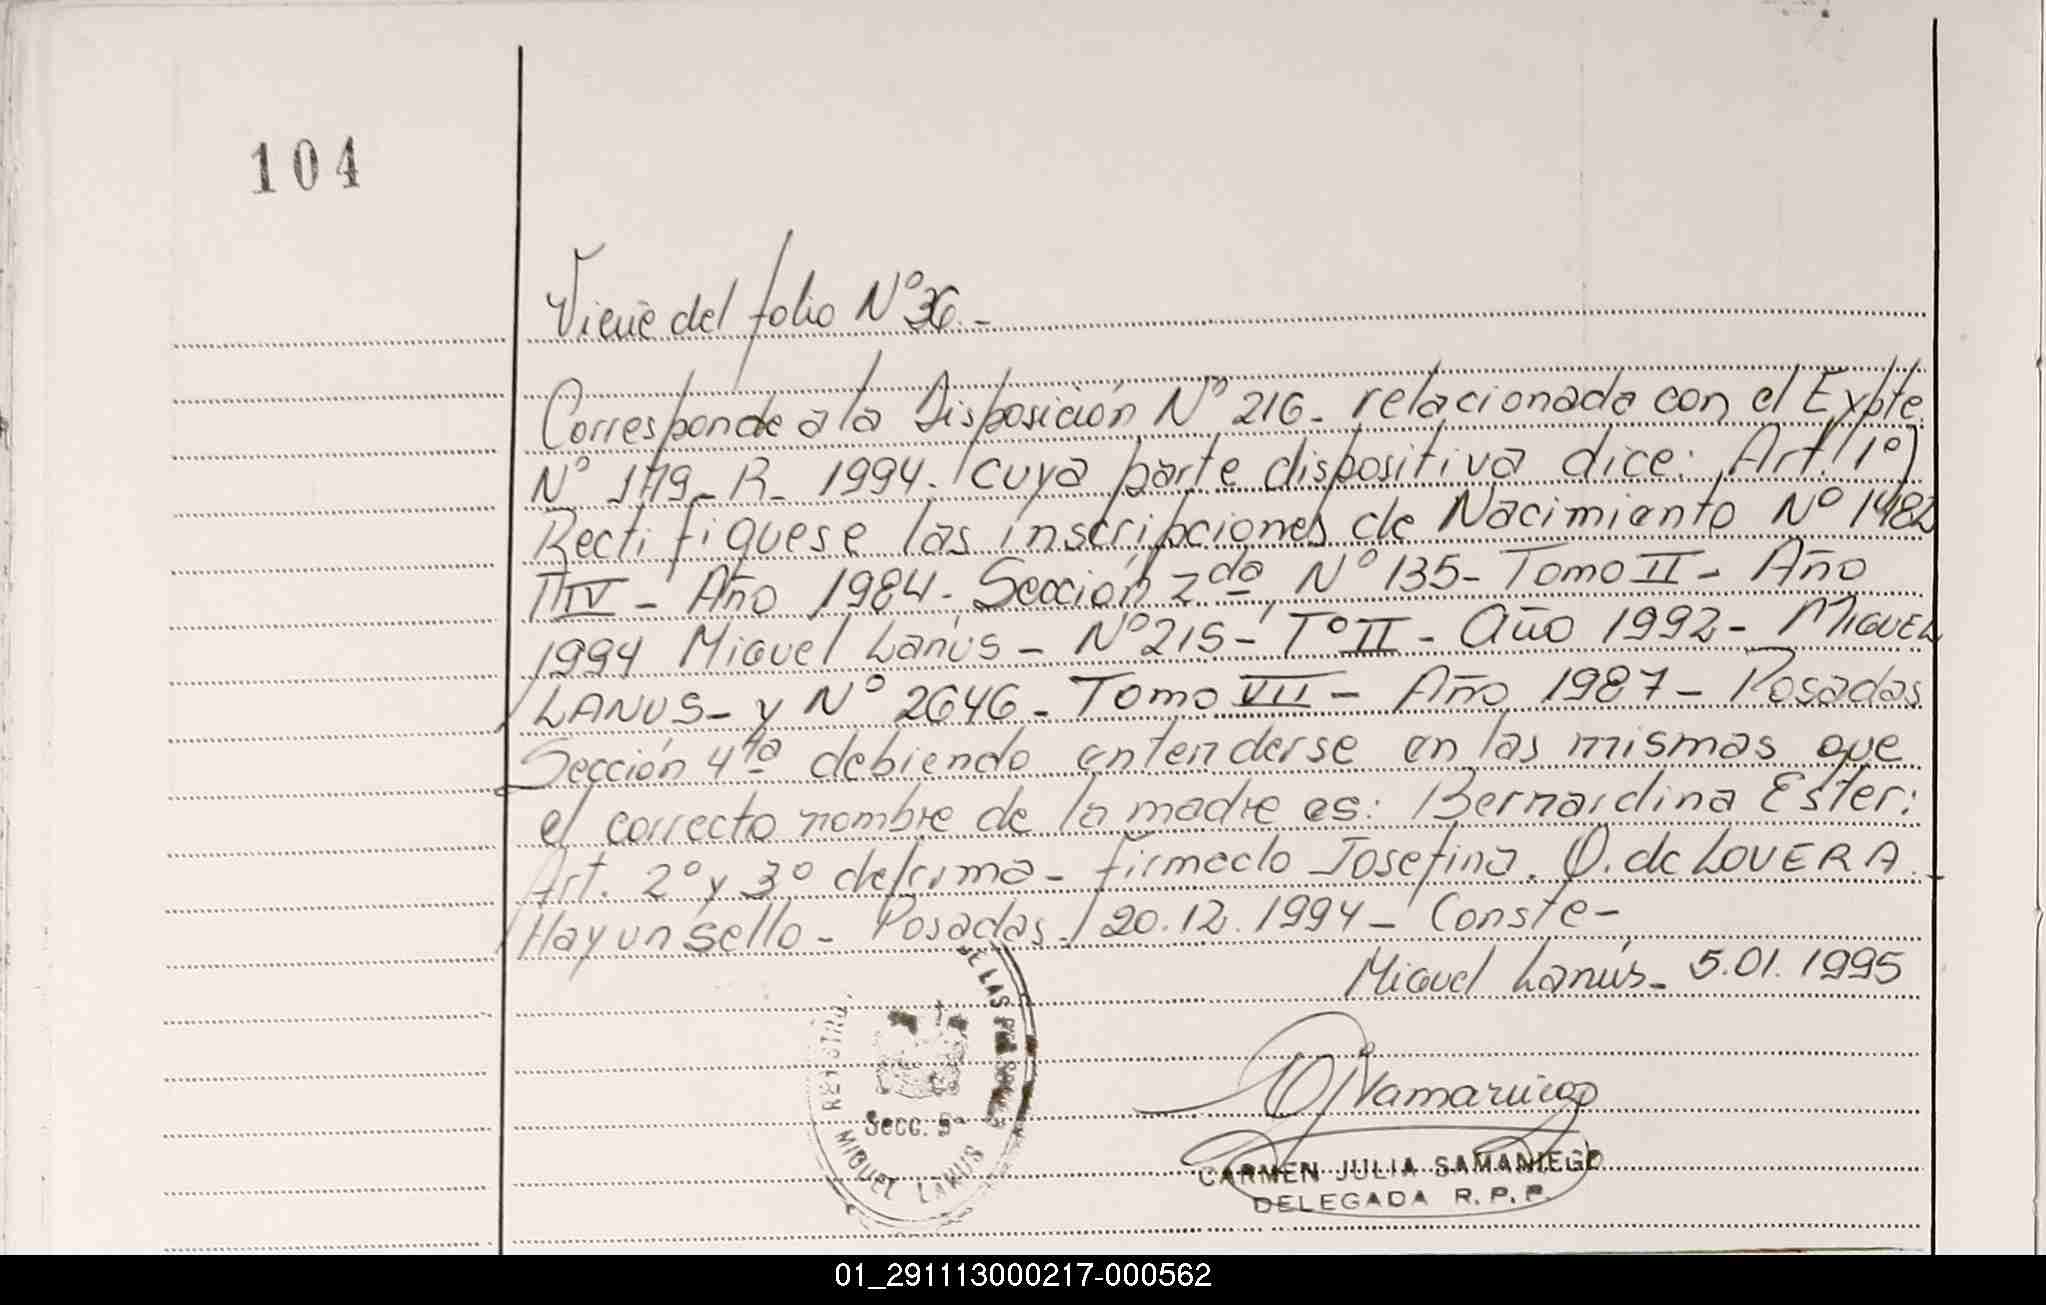 104
Viene del folio Nº 36.-
Corresponde a la Disposición Nº 216- relacionada con el Expte.
Nº 1719- R- 1994- cuya parte dispositiva dice: Art. 1º)
Rectifiquese las inscripciones de Nacimiento Nº 1482
T IV - Año 1984- Sección 2da, Nº 135- Tomo II - Año
1994 Miguel Lanús - Nº 215 - Tº II - Año 1992 - MIGUEL
LANUS - y Nº 2646 - Tomo VII - Año 1987 - Posadas
Sección 4ta debiendo entenderse en las mismas que
el correcto nombre de la madre es: Bernardina Ester:
Art. 2º y 3º de forma - firmado Josefina. O. de LOVERA.
Hay un sello - Posadas - 20.12.1994 - Conste -
Miguel Lanús - 5.01.1995
REGISTRO DE LAS PERSONAS
Secc. 9ª
MIGUEL LANUS
CARMEN JULIA SAMANIEGO
DELEGADA R.P.P.
01_291113000217-000562